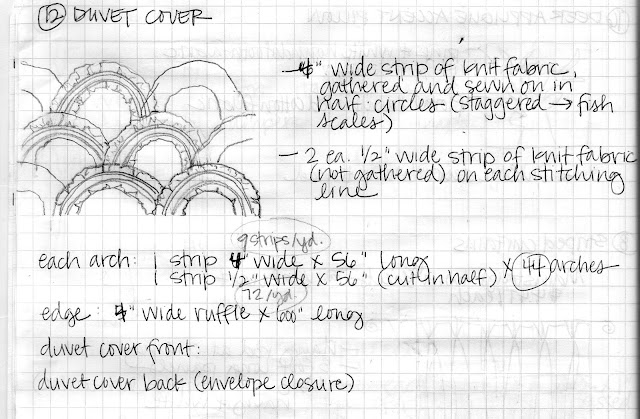 12 DUVET COVER
- 4" wide strip of knit fabric,
gathered and sewn on in
half-circles (staggered → fish
scales)
- 2 ea. 1/2" wide strip of knit fabric
(not gathered) on each stitching
line
9 strips/yd.
each arch: 1 strip 4" wide x 56" long
1 strip 1/2" wide x 56" (cut in half) x 44 arches
72/yd.
edge: 4" wide ruffle x 600" long
duvet cover front:
duvet cover back (envelope closure)